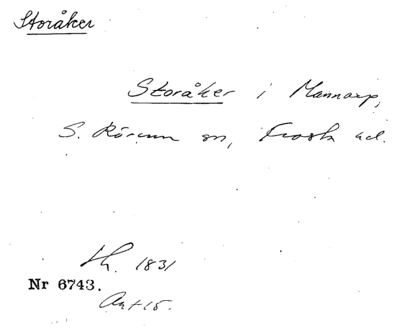 Storåker
Storåker i Mannarp,
S. Rörum sn, Frosta hd.
Lh. 1831
Nr 6743.
Akt 15.